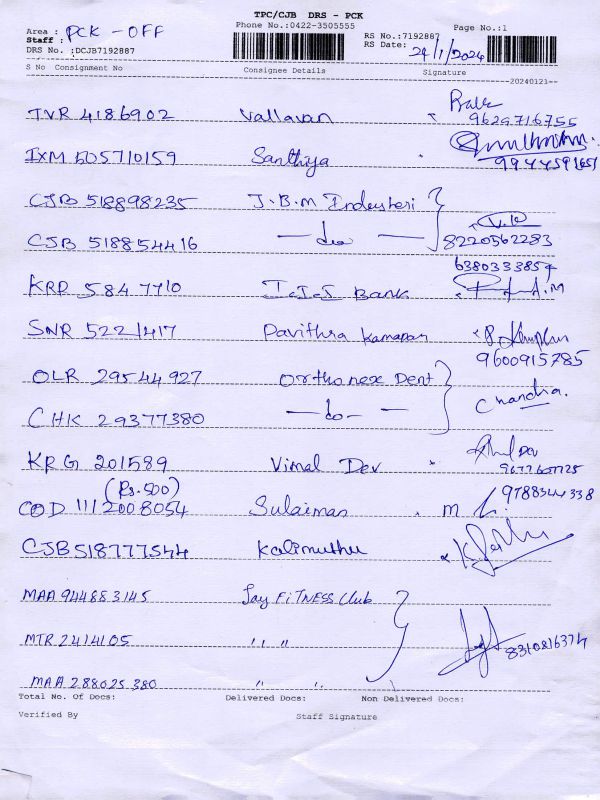 TPC/CJB DRS - PCK
Phone No.:0422-3505555 Page No.:1
Area : PCK - OFF RS No.:7192887
Staff : RS Date: 24/1/2024
DRS No. :DCJB7192887
S No Consignment No Consignee Details Signature
20240121
TVR 4186902 Vallavan 9629716755
IXM 505710159 Santhiya 9944591651
CJB 518898235 J.B.M Industeri
CJB 518854416 - do - 8220562283
KRR 5847710 Bank 6380333857
SNR 5221417 Pavithra Kamaran 9600915785
OLR 29544927 Orthonex Dent Chandra.
CHK 29377380 - do -
KRG 201589 Vimal Dev
(Rs.500)
COD 1112008054 Sulaiman 9788344338
CJB 518777544 Kalimuthu
MAA 944883145 Jay FiTNESS Club
MTR 2414105 " " 8310816374
MAA 288025380 " "
Total No. Of Docs: Delivered Docs: Non Delivered Docs:
Verified By Staff Signature